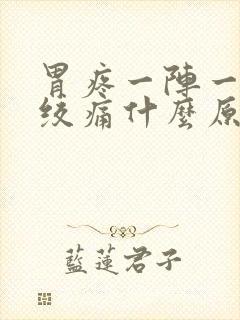 胃疼一陣一
绞痛什麼原
藍蓮君子